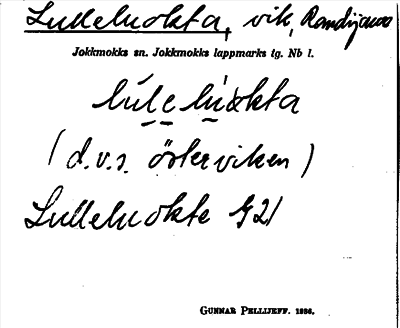 Lulleluokta, vik, Randijaur
Jokkmokks sn. Jokkmokks lappmarks tg. Nb l.
lúleluokta
(d.v.s. österviken)
Lulleluokte G21
GUNNAR PELLIJEFF. 1986.